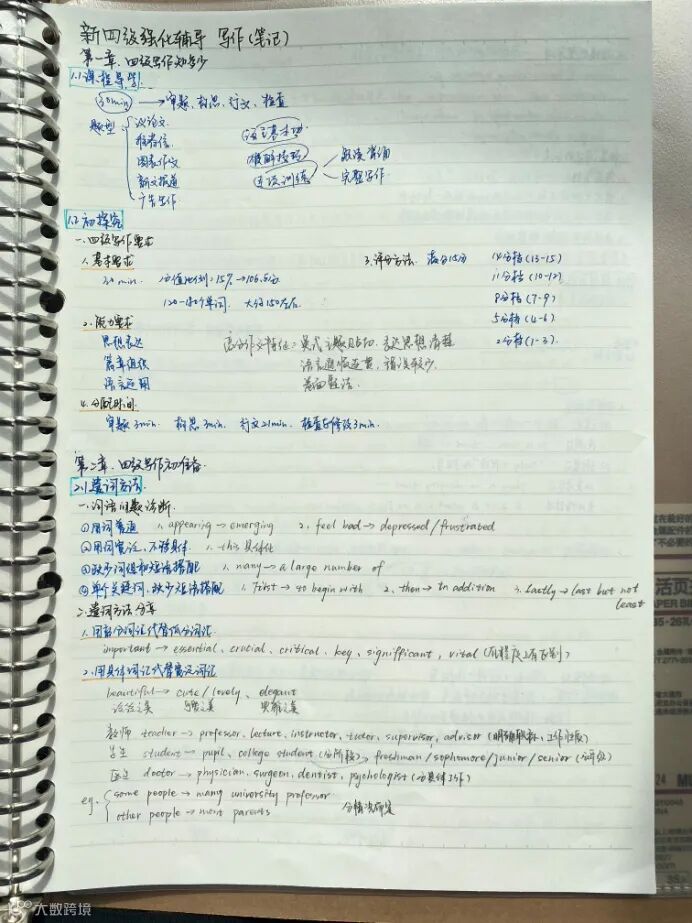 新四级强化辅导 写作(笔记)
第一章. 四级写作知多少
1.1 课程导学
30min → 审题、构思、行文、检查
题型 议论文 语言基本功
推荐信 模板技巧 
图表作文 训练 完整写作
新文报道
广告写作
1.2 初探究
一. 四级写作要求
1. 基本要求 3. 评分方法. 满分15分 14分档(13-15)
30 min. 分值比例: 15% → 106.5分 11分档(10-12)
120-180个单词. 大约150左右 8分档(7-9)
2. 能力要求 5分档(4-6)
思想表达 高分作文特征: 主题 表达思想清楚 2分档(1-3)
篇章组织 语言 连贯, 错误较少.
语言运用 卷面整洁.
4. 分配时间
审题3min. 构思3min. 行文21min. 检查与修改3min.
第二章. 四级写作初准备
2.1 选词方法
一. 词语问题诊断
①用词普通 1. appearing → emerging 2. feel bad → depressed/frustrated
②用词宽泛、不够具体 1. this 具体化
③缺少词组和短语搭配 1. many → a large number of
④单个关键词、缺少短语搭配 1. First → to begin with 2. then → In addition 3. Lastly → last but not least
二. 选词方法分享
1. 用高分词汇代替低分词汇
important → essential, crucial, critical, key, significant, vital (有区别)
2. 用具体词汇代替宽泛词汇
beautiful → cute/lovely, elegant
教师 teacher → professor, lecture, instructor, tutor, supervisor, advisor (明确职称、工作性质)
学生 student → pupil, college student (分阶段), freshman/sophomore/junior/senior (分年级)
医生 doctor → physician, surgeon, dentist, psychologist (分具体工作)
eg. some people → many university professor
other people → most parents 分情况而定
大数跨境